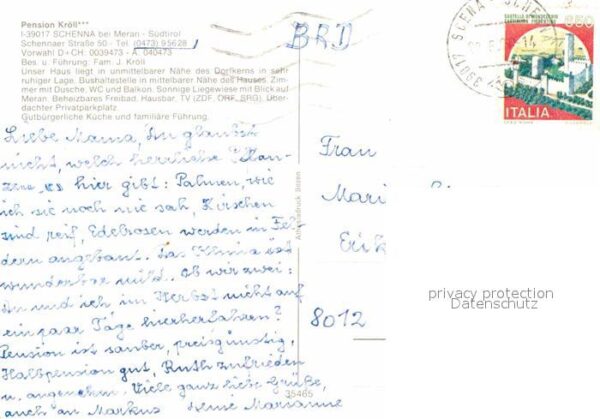 Pension Kröll***
I-39017 SCHENNA bei Meran - Südtirol
Schennaer Straße 50 - Tel. (0473) 95628
Vorwahl D+CH. 0039473 - A. 040473
Bes u. Führung. Fam. J. Kröll
Unser Haus liegt in unmittelbarer Nähe des Dorfkerns in sehr
ruhiger Lage. Bushaltestelle in mittelbarer Nähe des Hauses. Zim-
mer mit Dusche, WC und Balkon. Sonnige Liegewiese mit Blick auf
Meran. Beheizbares Freibad, Hausbar, TV (ZDF, ORF, SRG). Über-
dachter Privatparkplatz
Gutbürgerliche Küche und familiäre Führung.
Liebe Mama, Du glaubst
nicht, welch herrliche Pflan-
zen es hier gibt: Palmen, wie
ich sie noch nie sah, Kirschen
sind reif, Edelrosen werden in Fel-
dern angebaut. Das Klima ist
wunderbar mild. Ob wir zwei:
Du und ich im Herbst nicht auf
ein paar Tage hierherfahren?
Pension ist sauber, preisgünstig,
Halbpension gut, Ruth zufrieden
u. angenehm. Viele ganz liebe Grüße,
auch an Markus Deine Marianne
35465
BRD
Frau
8012
650
ITALIA
39017 SCENA - SCHENNA
privacy protection
Datenschutz